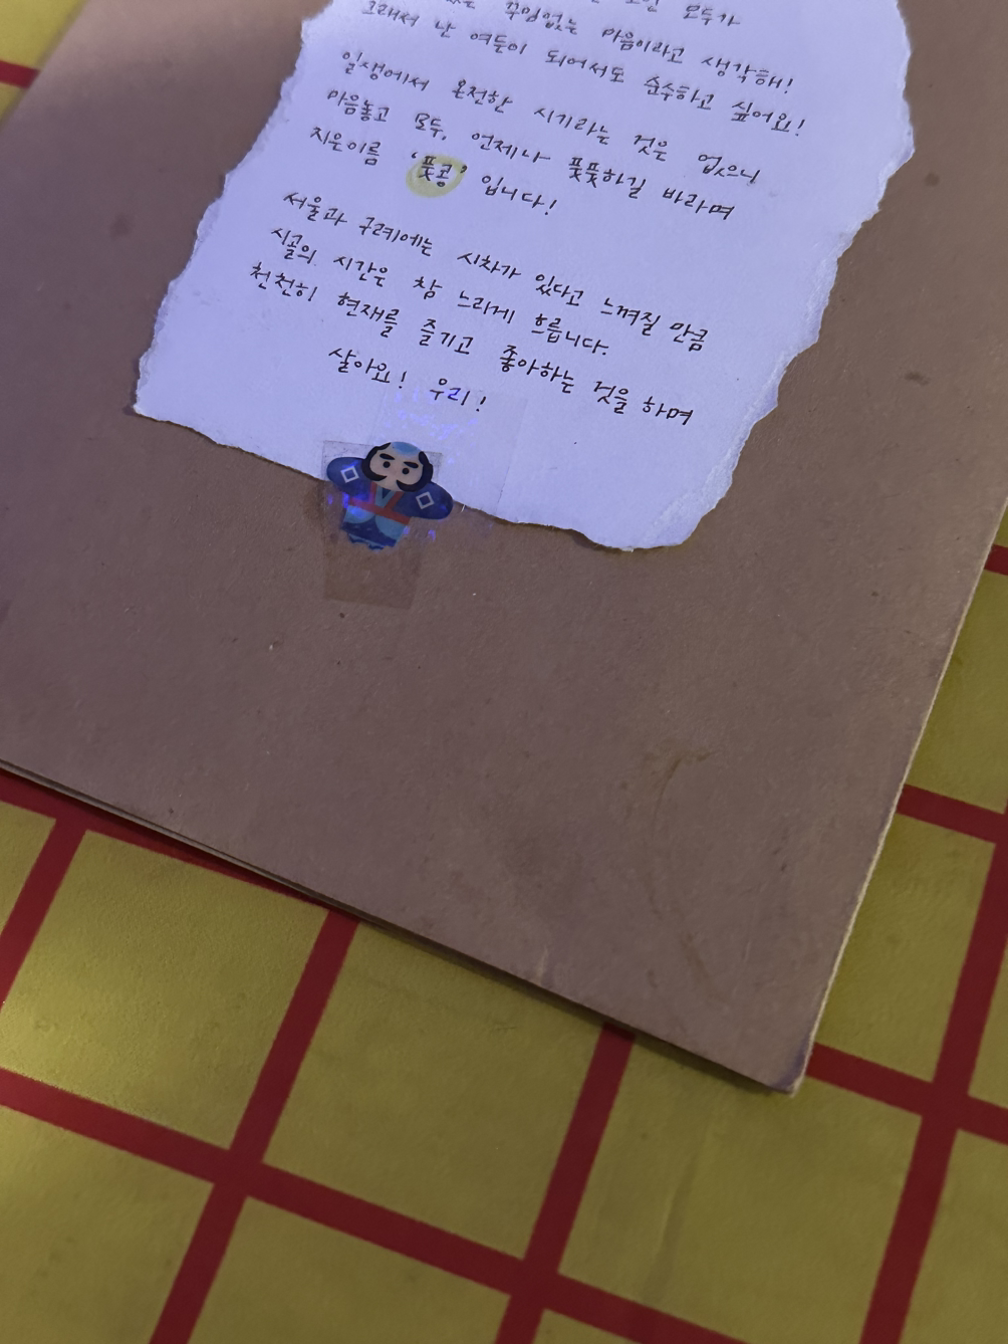 모두가
꾸밈없는 마음이라고 생각해!
그래서 난 여든이 되어서도 순수하고 싶어요!
일생에서 온전한 시기라는 것은 없으니
마음놓고 모두, 언제나 풋풋하길 바라며
지은이름 '풋콩' 입니다!
서울과 구례에는 시차가 있다고 느껴질 만큼
시골의 시간은 참 느리게 흐릅니다.
천천히 현재를 즐기고 좋아하는 것을 하며
살아요! 우리!